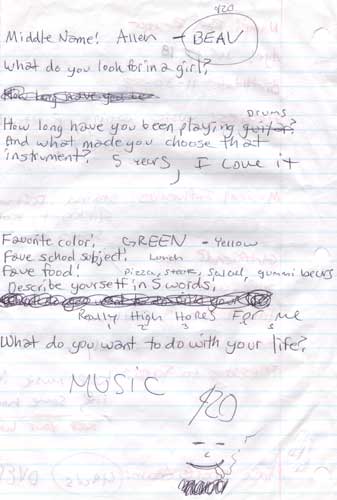 420
Middle Name! Allen - BEAV
What do you look for in a girl?
How long have you
DRUMS
How long have you been playing guitar?
And what made you choose that
instrument? 5 years, I Love it
Favorite color! GREEN - Yellow
Fave school subject! Lunch
Fave food! pizza, steak, salad, gummi bears
Describe yourself in 5 words!
Really High Hates For me
1 2 3 4 5
What do you want to do with your life?
MUSIC
420